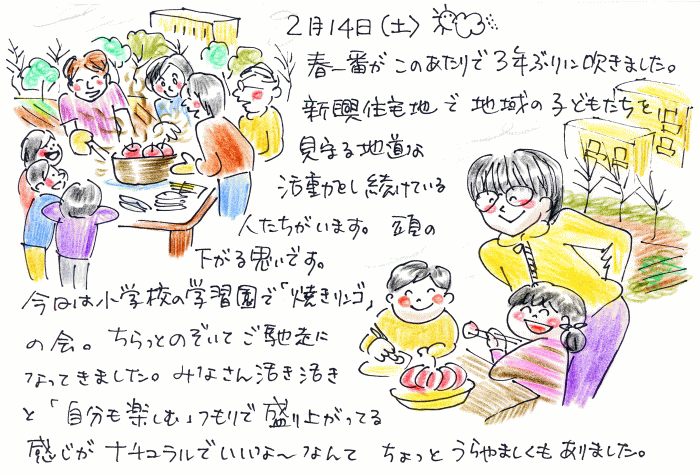 2月14日（土）
春一番がこのあたりで3年ぶりに吹きました。
新興住宅地で地域の子どもたちを
見守る地道な
活動をし続けている
人たちがいます。頭の
下がる思いです。
今日は小学校の学習園で「焼きリンゴ」
の会。ちらっとのぞいてご馳走に
なってきました。みなさん活き活き
と「自分も楽しむ」つもりで盛り上がってる
感じがナチュラルでいいよ～なんて ちょっとうらやましくもありました。